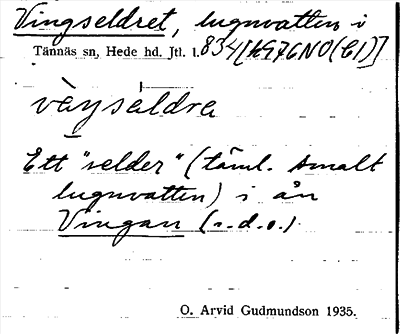 Vingseldret, lugnvatten i
Tännäs sn, Hede hd, Jtl. l. 834 [19G7GNO(C1)]
vàysäldra
Ett "selder" (täml. smalt
lugnvatten) i ån
Vingan (s.d.o.).
O. Arvid Gudmundson 1935.